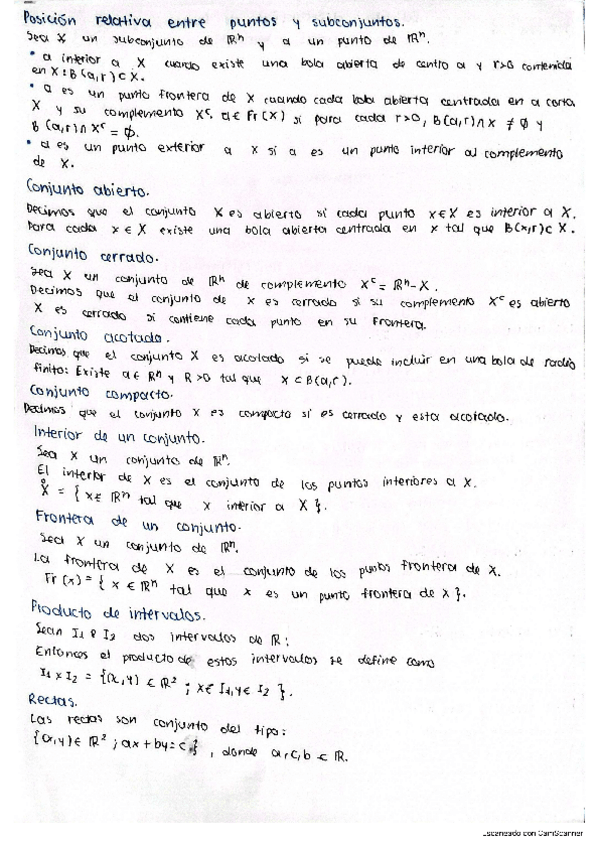 Posición relativa entre puntos y subconjuntos.
Sea X un subconjunto de ℝⁿ y a un punto de ℝⁿ.
• a interior a X cuando existe una bola abierta de centro a y r>0 contenida
en X : B(a,r)⊂X.
• a es un punto frontera de X cuando cada bola abierta centrada en a corta
X y su complemento Xᶜ. a∈Fr(X) si para cada r>0, B(a,r)∩X ≠ ∅ y
B(a,r)∩Xᶜ = ∅.
• a es un punto exterior a X si a es un punto interior al complemento
de X.
Conjunto abierto.
Decimos que el conjunto X es abierto si cada punto x∈X es interior a X.
Para cada x∈X existe una bola abierta centrada en x tal que B(x,r)⊂X.
Conjunto cerrado.
Sea X un conjunto de ℝⁿ de complemento Xᶜ = ℝⁿ-X.
Decimos que el conjunto de X es cerrado si su complemento Xᶜ es abierto
X es cerrado si contiene cada punto en su frontera.
Conjunto acotado.
Decimos que el conjunto X es acotado si se puede incluir en una bola de radio
finito: Existe a∈ℝⁿ y R>0 tal que X⊂B(a,r).
Conjunto compacto.
Decimos que el conjunto X es compacto si es cerrado y esta acotado.
Interior de un conjunto.
Sea X un conjunto de ℝⁿ.
El interior de X es el conjunto de los puntos interiores a X.
X̊ = {x∈ℝⁿ tal que x interior a X}.
Frontera de un conjunto.
Sea X un conjunto de ℝⁿ.
La frontera de X es el conjunto de los puntos frontera de X.
Fr(x) = {x∈ℝⁿ tal que x es un punto frontera de X}.
Producto de intervalos.
Sean I₁ e I₂ dos intervalos de ℝ:
Entonces el producto de estos intervalos se define como
I₁ x I₂ = {(x,y) ∈ ℝ² ; x∈I₁, y∈I₂}.
Rectas.
Las rectas son conjunto del tipo:
{(x,y)∈ℝ² ; ax+by=c}, donde a,c,b ∈ ℝ.
Escaneado con CamScanner